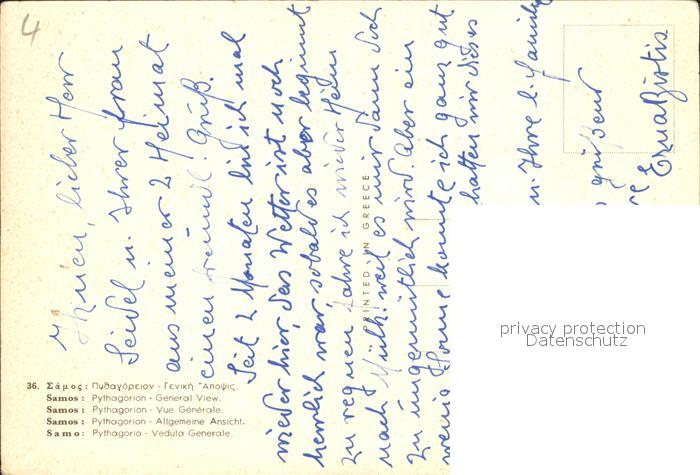 4
Ihnen, lieber Herr
Seidel u. Ihrer Frau
aus meiner 2 Heimat
einen freundl. Gruß.
Seit 2 Monaten bin ich mal
wieder hier, das Wetter ist noch
herrlich war, sobald es aber beginnt
zu regnen fahre ich wieder Heim
nach Mülh. weil es mir dann doch
zu ungemütlich wird. Aber ein
wenig Sonne konnte ich ganz gut
hatten mir dieses
u. Ihre l. Familie
grüssend
Erna
PRINTED IN GREECE
36. Σάμος: Πυθαγόρειον - Γενική Ἄποψις.
Samos: Pythagorion - General View.
Samos: Pythagorion - Vue Générale.
Samos: Pythagorion - Allgemeine Ansicht.
Samo: Pythagorio - Veduta Generale.
privacy protection
Datenschutz